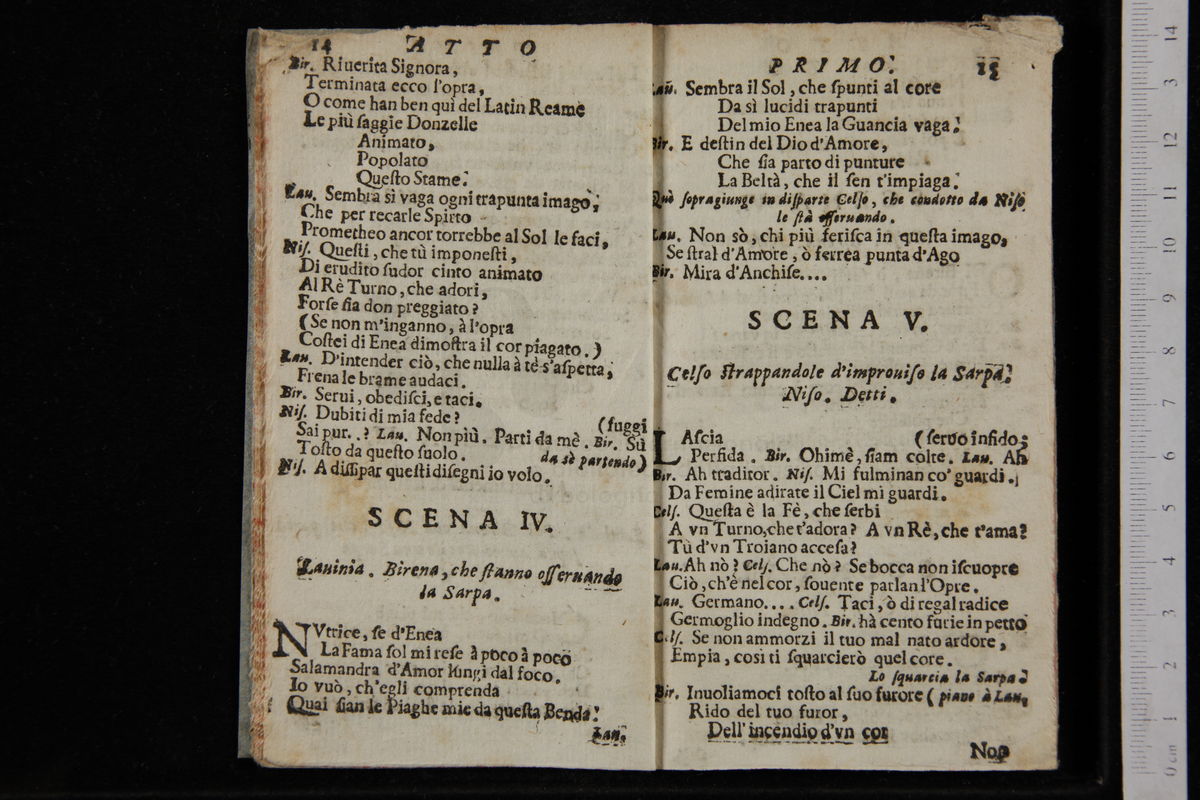 14 ATTO
Bir. Riuerita Signora,
Terminata ecco l'opra,
O come han ben quì del Latin Reame
Le più ſaggie Donzelle
Animato,
Popolato
Queſto Stame.
Lau. Sembra sì vaga ogni trapunta imago,
Che per recarle Spirto
Prometheo ancor torrebbe al Sol le faci,
Niſ. Queſti, che tù imponeſti,
Di erudito ſudor cinto animato
Al Rè Turno, che adori,
Forſe ſia don preggiato?
(Se non m'inganno, à l'opra
Coſtei di Enea dimoſtra il cor piagato.)
Lau. D'intender ciò, che nulla à tè s'aſpetta,
Frena le brame audaci.
Bir. Serui, obediſci, e taci.
Niſ. Dubiti di mia fede? (fuggi
Sai pur. .? Lau. Non più. Parti da mè. Bir. Sù
Toſto da queſto ſuolo. da sè partendo)
Niſ. A diſſipar queſti diſegni io volo.
SCENA IV.
Lauinia. Birena, che ſtanno oſſeruando
la Sarpa.
NVtrice, ſe d'Enea
La Fama ſol mi reſe à poco à poco
Salamandra d'Amor lungi dal foco,
Io vuò, ch'egli comprenda
Quai ſian le Piaghe mie da queſta Benda.
Lau.
PRIMO. 15
Lau. Sembra il Sol, che ſpunti al core
Da sì lucidi trapunti
Del mio Enea la Guancia vaga.
Bir. E deſtin del Dio d'Amore,
Che ſia parto di punture
La Beltà, che il ſen t'impiaga.
Quì ſopragiunge in diſparte Celſo, che condotto da Niſo
le ſtà oſſeruando.
Lau. Non sò, chi più feriſca in queſta imago,
Se ſtral d'Amore, ò ferrea punta d'Ago
Bir. Mira d'Anchiſe....
SCENA V.
Celſo ſtrappandole d'improuiſo la Sarpa.
Niſo. Detti.
LAſcia (ſeruo infido;
Perfida. Bir. Ohimè, ſiam colte. Lau. Ah
Bir. Ah traditor. Niſ. Mi fulminan co' guardi.
Da Femine adirate il Ciel mi guardi.
Celſ. Queſta è la Fè, che ſerbi
A vn Turno, che t'adora? A vn Rè, che t'ama?
Tù d'vn Troiano acceſa?
Lau. Ah nò? Celſ. Che nò? Se bocca non iſcuopre
Ciò, ch'è nel cor, ſouente parlan l'Opre.
Lau. Germano.... Celſ. Taci, ò di regal radice
Germoglio indegno. Bir. hà cento furie in petto
Celſ. Se non ammorzi il tuo mal nato ardore,
Empia, così ti ſquarcierò quel core.
Lo ſquarcia la Sarpa.
Bir. Inuoliamoci toſto al ſuo furore (piano à Lau,
Rido del tuo furor,
Dell'incendio d'vn cor
Non